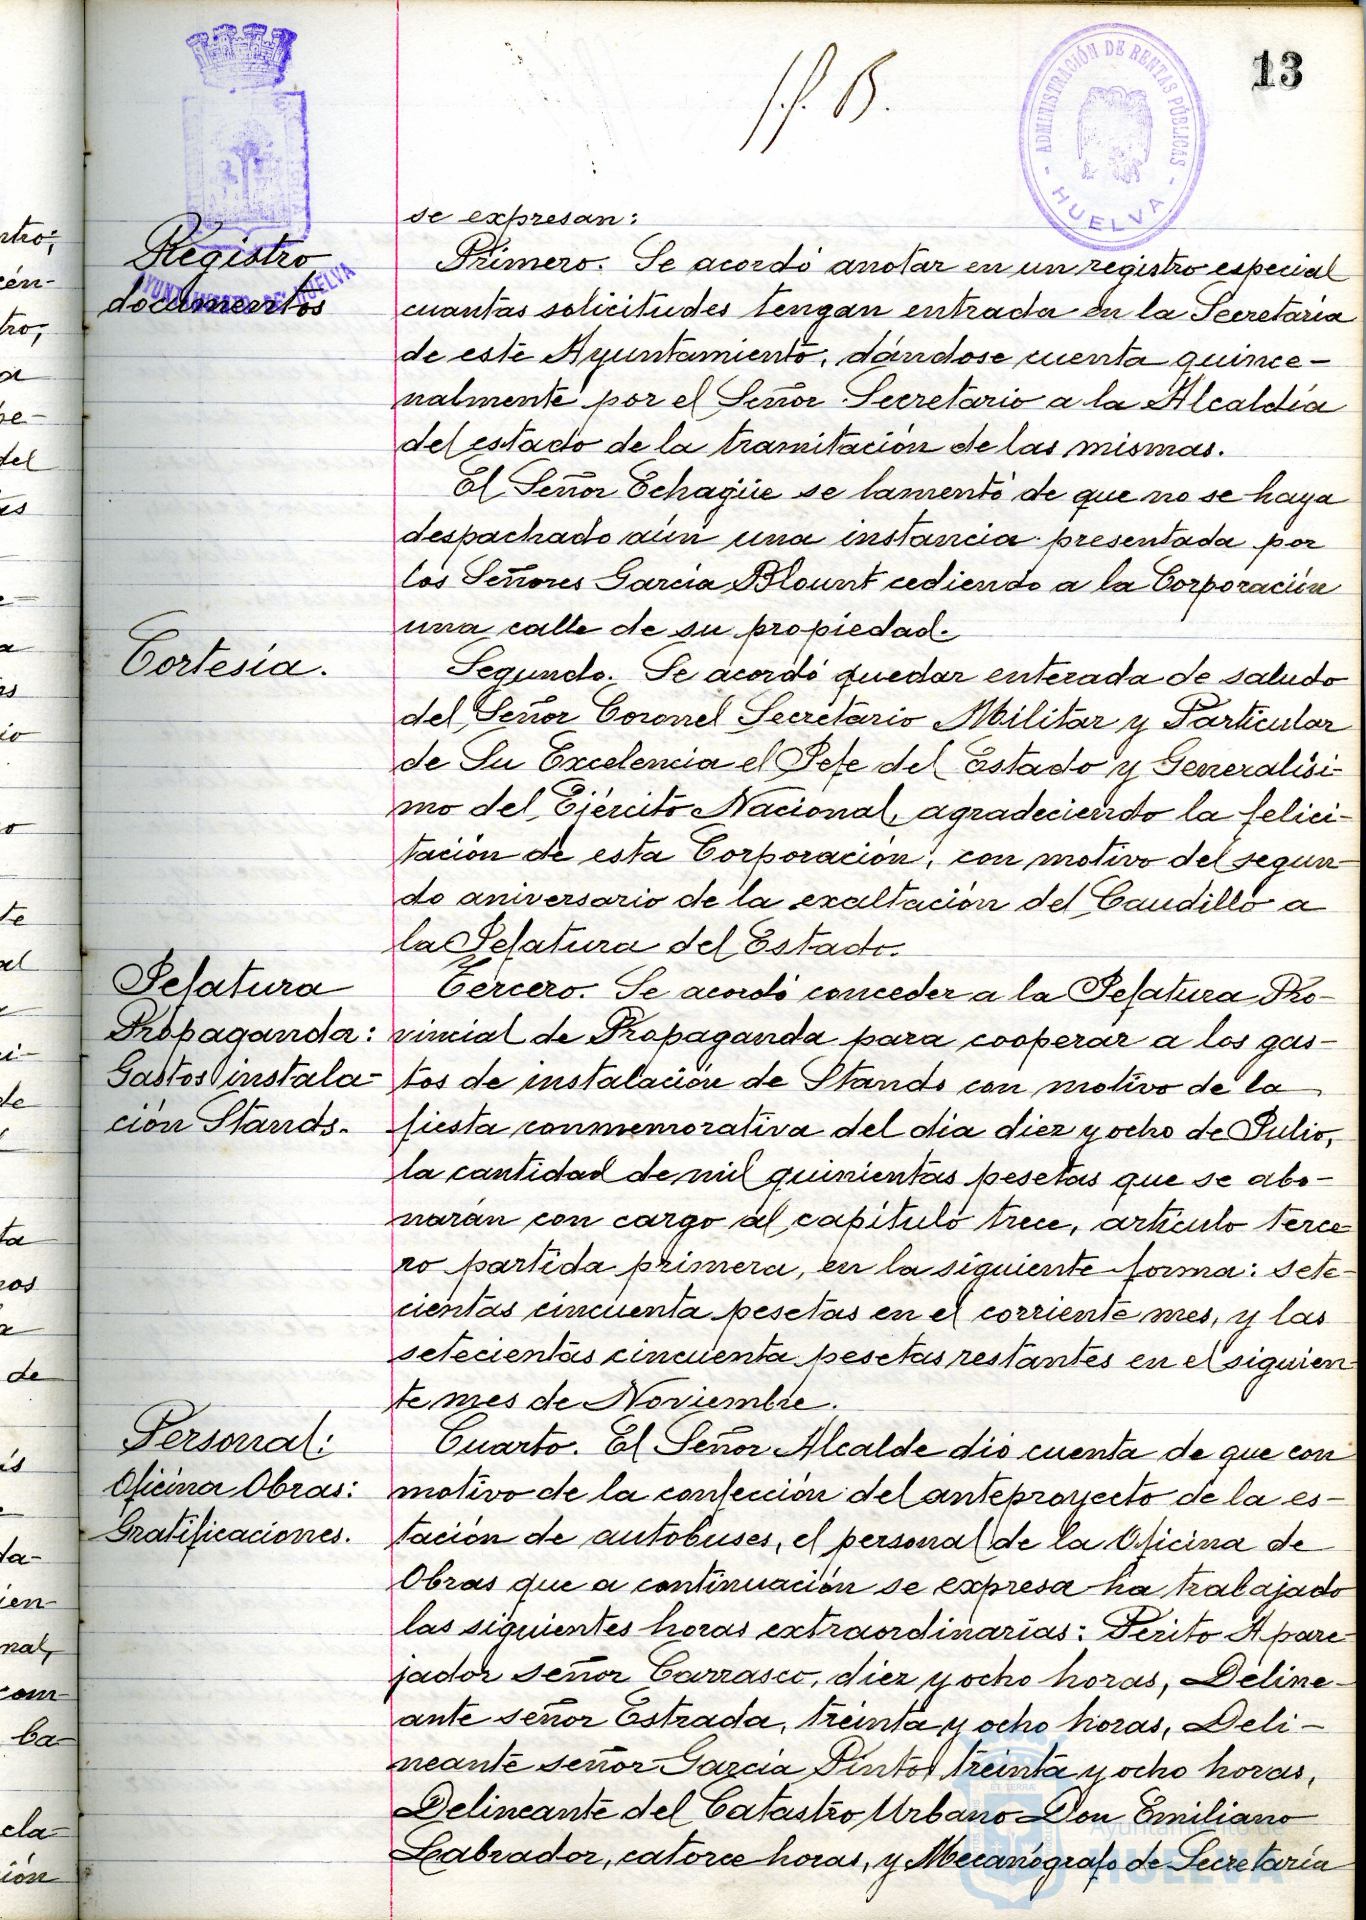 13
ADMINISTRACIÓN DE RENTAS PÚBLICAS
- HUELVA -
AYUNTAMIENTO DE HUELVA
se expresan:
Registro
documentos
Primero. Se acordó anotar en un registro especial
cuantas solicitudes tengan entrada en la Secretaría
de este Ayuntamiento, dándose cuenta quince-
nalmente por el Señor Secretario a la Alcaldía
del estado de la tramitación de las mismas.
El Señor Echagüe se lamentó de que no se haya
despachado aún una instancia presentada por
los Señores García Blount cediendo a la Corporación
una calle de su propiedad.
Cortesía.
Segundo. Se acordó quedar enterada de saludo
del Señor Coronel Secretario Militar y Particular
de Su Excelencia el Jefe del Estado y Generalísi-
mo del Ejército Nacional, agradeciendo la felici-
tación de esta Corporación, con motivo del segun-
do aniversario de la exaltación del Caudillo a
la Jefatura del Estado.
Jefatura
Propaganda:
Gastos instala-
ción Stands.
Tercero. Se acordó conceder a la Jefatura Pro-
vincial de Propaganda para cooperar a los gas-
tos de instalación de Stands con motivo de la
fiesta conmemorativa del dia diez y ocho de Julio,
la cantidad de mil quinientas pesetas que se abo-
narán con cargo al capítulo trece, artículo terce-
ro partida primera, en la siguiente forma: sete-
cientas cincuenta pesetas en el corriente mes, y las
setecientas cincuenta pesetas restantes en el siguien-
te mes de Noviembre.
Personal:
Oficina Obras:
Gratificaciones.
Cuarto. El Señor Alcalde dió cuenta de que con
motivo de la confección del anteproyecto de la es-
tación de autobuses, el personal de la Oficina de
Obras que a continuación se expresa ha trabajado
las siguientes horas extraordinarias: Perito Apare-
jador señor Carrasco, diez y ocho horas, Deline-
ante señor Estrada, treinta y ocho horas, Deli-
neante señor García Pinto, treinta y ocho horas,
Delineante del Catastro Urbano Don Emiliano
Labrador, catorce horas, y Mecanógrafo de Secretaría
Ayuntamiento de
HUELVA